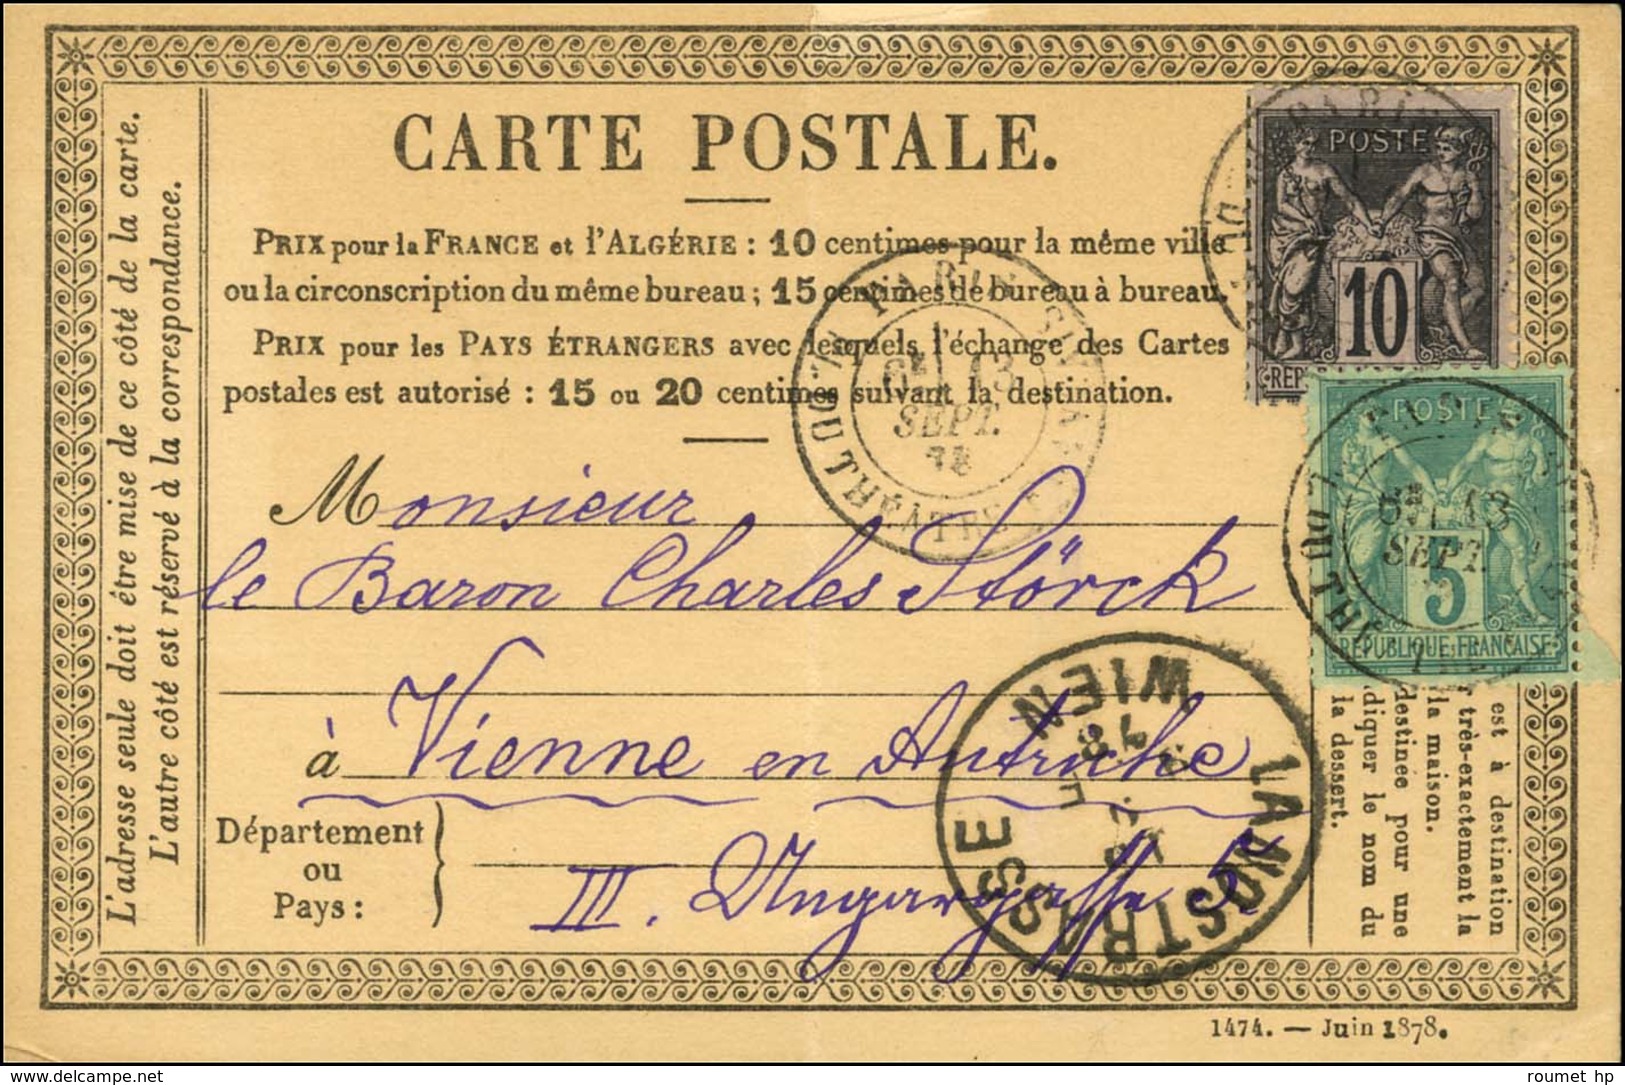 CARTE POSTALE.
PRIX pour la FRANCE et l'ALGÉRIE : 10 centimes pour la même ville
ou la circonscription du même bureau ; 15 centimes de bureau à bureau.
PRIX pour les PAYS ÉTRANGERS avec lesquels l'échange des Cartes
postales est autorisé : 15 ou 20 centimes suivant la destination.
L'adresse seule doit être mise de ce côté de la carte.
L'autre côté est réservé à la correspondance.
POSTE
10
REP
POSTE
5
RÉPUBLIQUE FRANÇAISE
6E 13
SEPT.
78
6E 13
SEPT.
Monsieur
le Baron Charles Störck
à Vienne en Autriche
III. Ungargasse 5.
Département
ou
Pays :
WIEN
LANDSTRASSE
est à destination
très-exactement la
la maison.
destinée pour une
diquer le nom du
la dessert.
1474. — Juin 1878.
roumet hp
delcampe.net